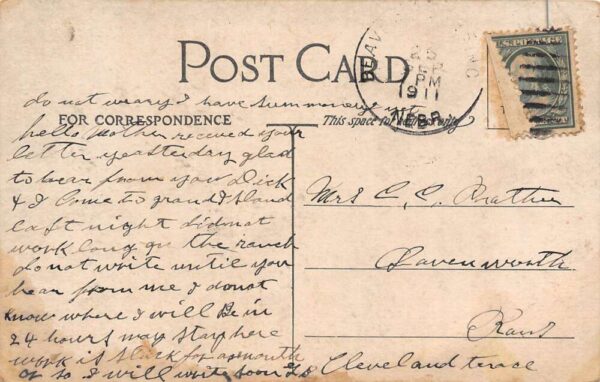 POST CARD
do not worry I have some money yet
FOR CORRESPONDENCE
This space for
hello Mother received your
letter yesterday glad
to hear from you Dick
& I come to grand Island
last night did not
work long on the ranch
do not write until you
hear from me I donot
know where I will Be in
24 hours may stay here
work is slack for a month
or so I will write soon
1911
PM
NEBR.
Mrs C. C. Prather
Leavenworth
Kans
Cleveland terrace